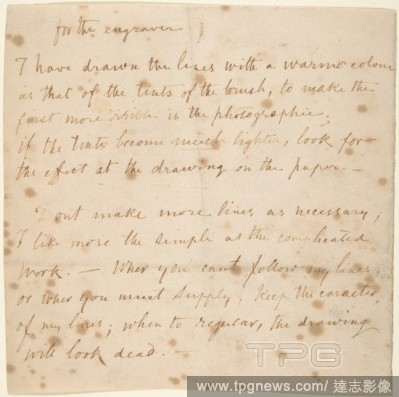 for the engraver
I have drawn the lines with a warme colour
as that of the tints of the brush, to make the
more visible in the photographie.
if the tints become much lighter, look for
the effect at the drawing on the paper. —
Dont make more lines as necessary;
I like more the simple as the complicated
work. — Wher you cant follow my lines,
or wher you must supply, Keep the caracter
of my lines; when to regular, the drawing
will look dead. —
TPG
www.tpgnews.com/達志影像